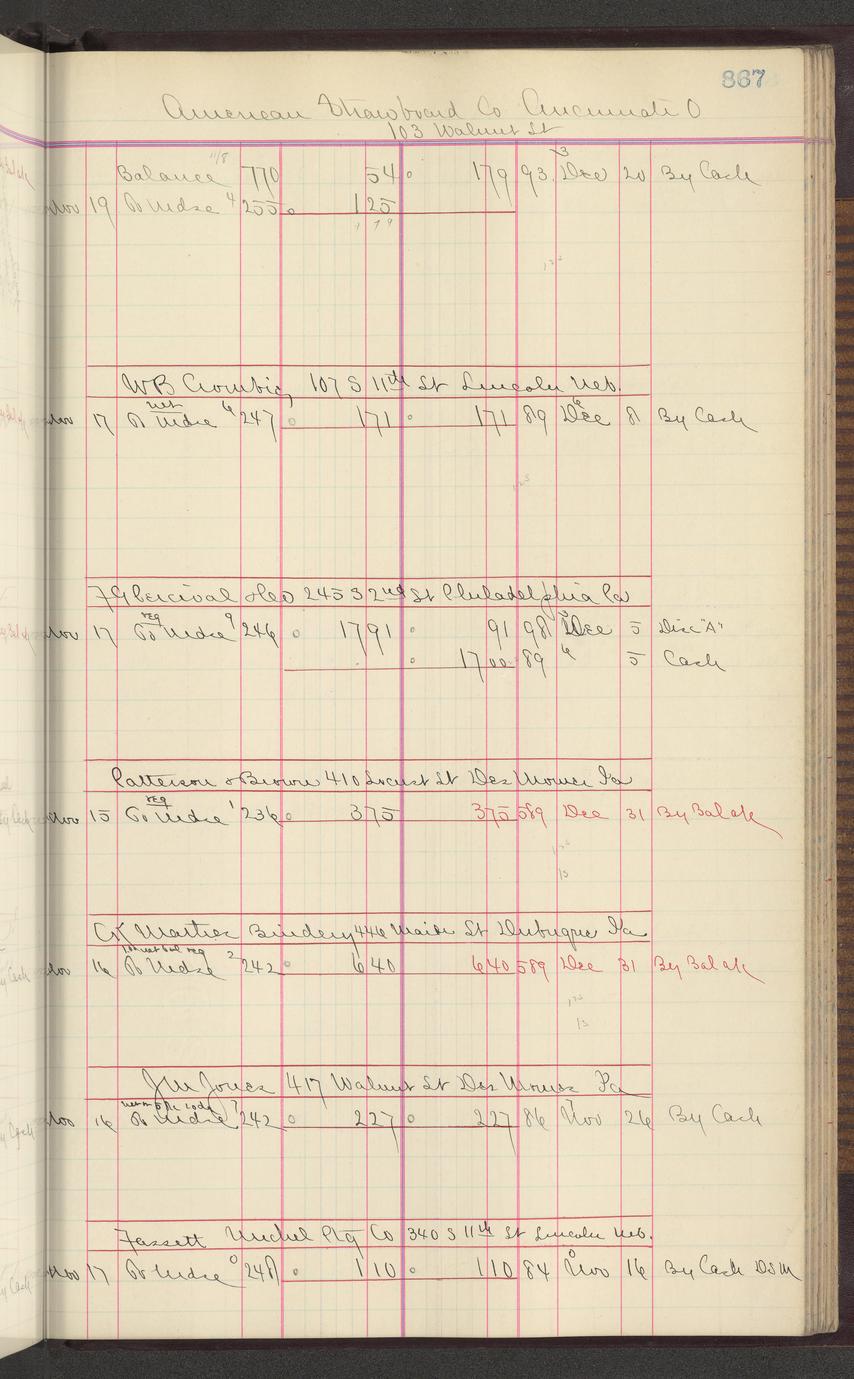 867
American Strawboard Co Cincinnati O
103 Walnut St
Balance 11/8 770 54 179 93 3 Dec 20 By Cash
Nov 19 To Mdse 4 255 125
179
W B Crombie, 107 S 11th St Lincoln Neb.
net
Nov 17 To Mdse 6 247 171 171 89 Dec 8 By Cash
Percival 245 S 2nd St Philadelphia Pa
reg
Nov 17 To Mdse 9 246 1791 91 98 Dec 5 Disc "A"
1700 89 6 5 Cash
Patterson & Brown 410 Locust St Des Moines Ia
reg
Nov 15 To Mdse 1 236 375 375 589 Dec 31 By Bal ok
Bindery 446 Main St Dubuque Ia
reg
Nov 16 To Mdse 2 242 640 640 589 Dec 31 By Bal ok
J W Jones 417 Walnut St Des Moines Ia
Nov 16 To Mdse 7 242 227 227 86 Nov 26 By Cash
Fassett Michel Ptg Co 340 S 11th St Lincoln Neb.
Nov 17 To Mdse 0 248 110 110 84 Nov 16 By Cash DSM